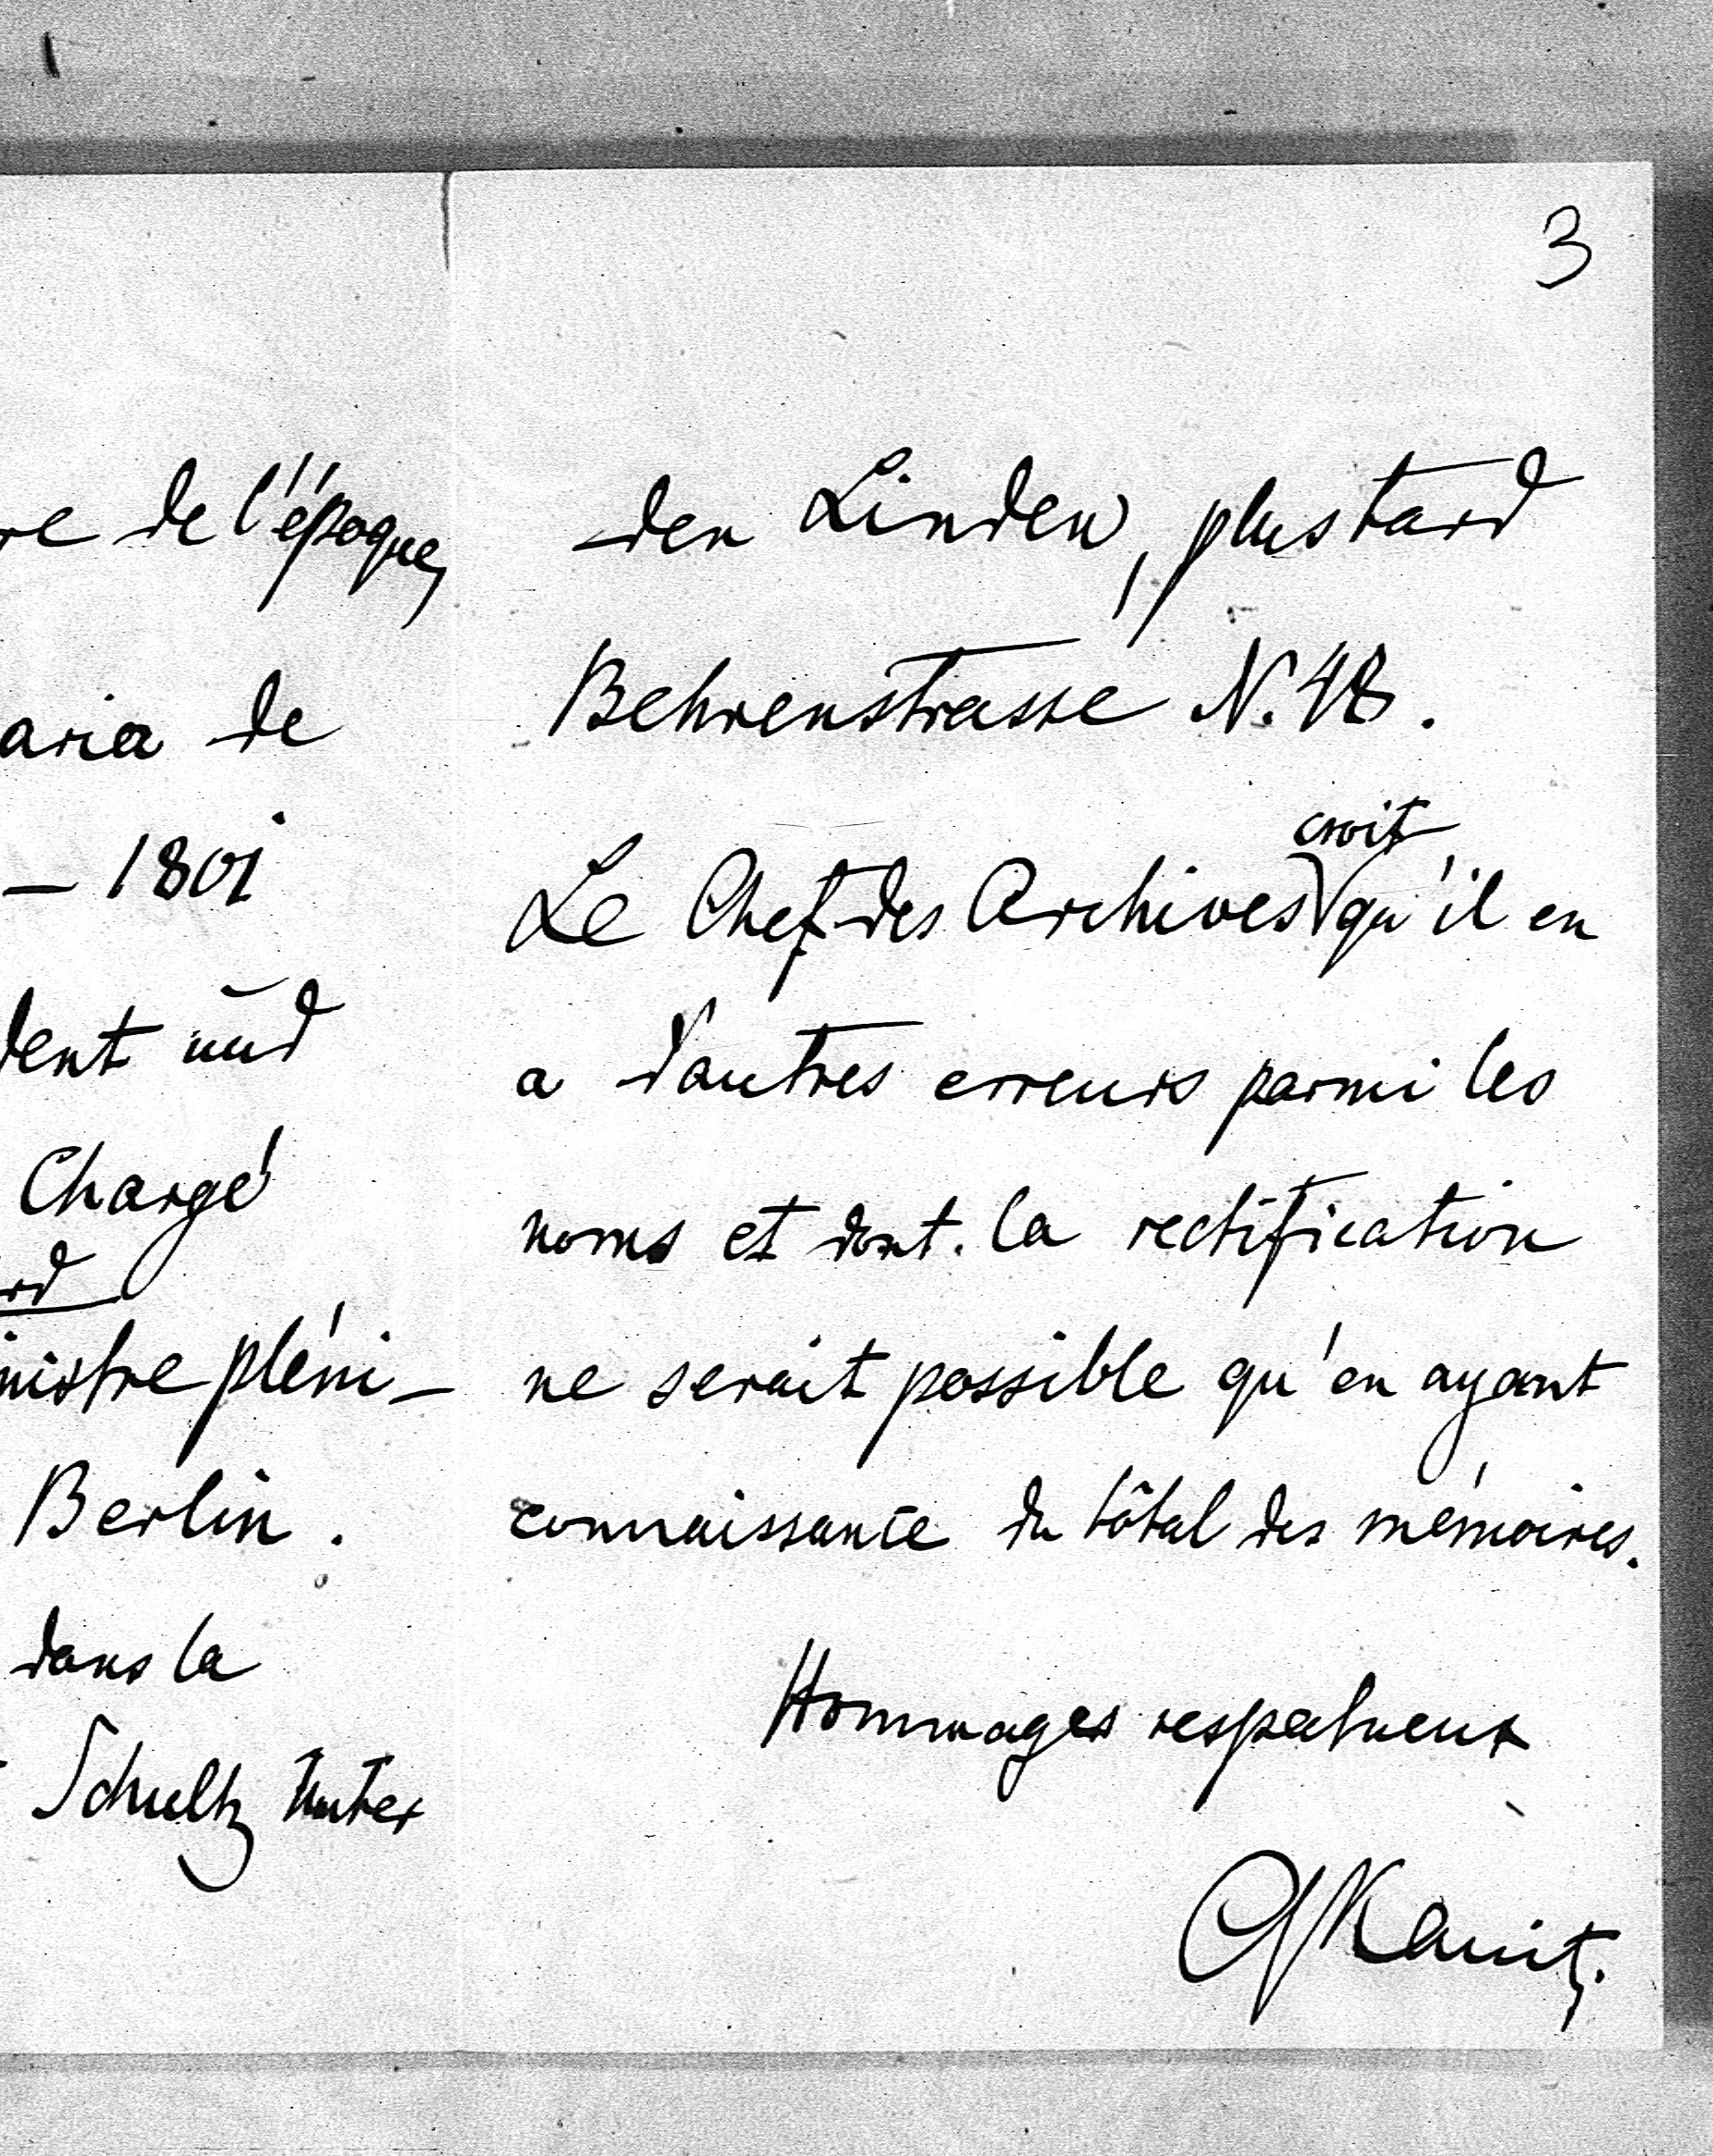 3
re de l'époque,
aria de
— 1801
dent und
Chargé
rd
nistre pléni-
Berlin.
dans la
Schultz Unter
den Linden, plus tard
Behrenstrasse N. 48.
croit
Le Chef des Archives qu'il en
a d'autres erreurs parmi les
noms et dont la rectification
ne serait possible qu'en ayant
connaissance du tôtal des mémoires.
Hommages respectueux
Kanitz.